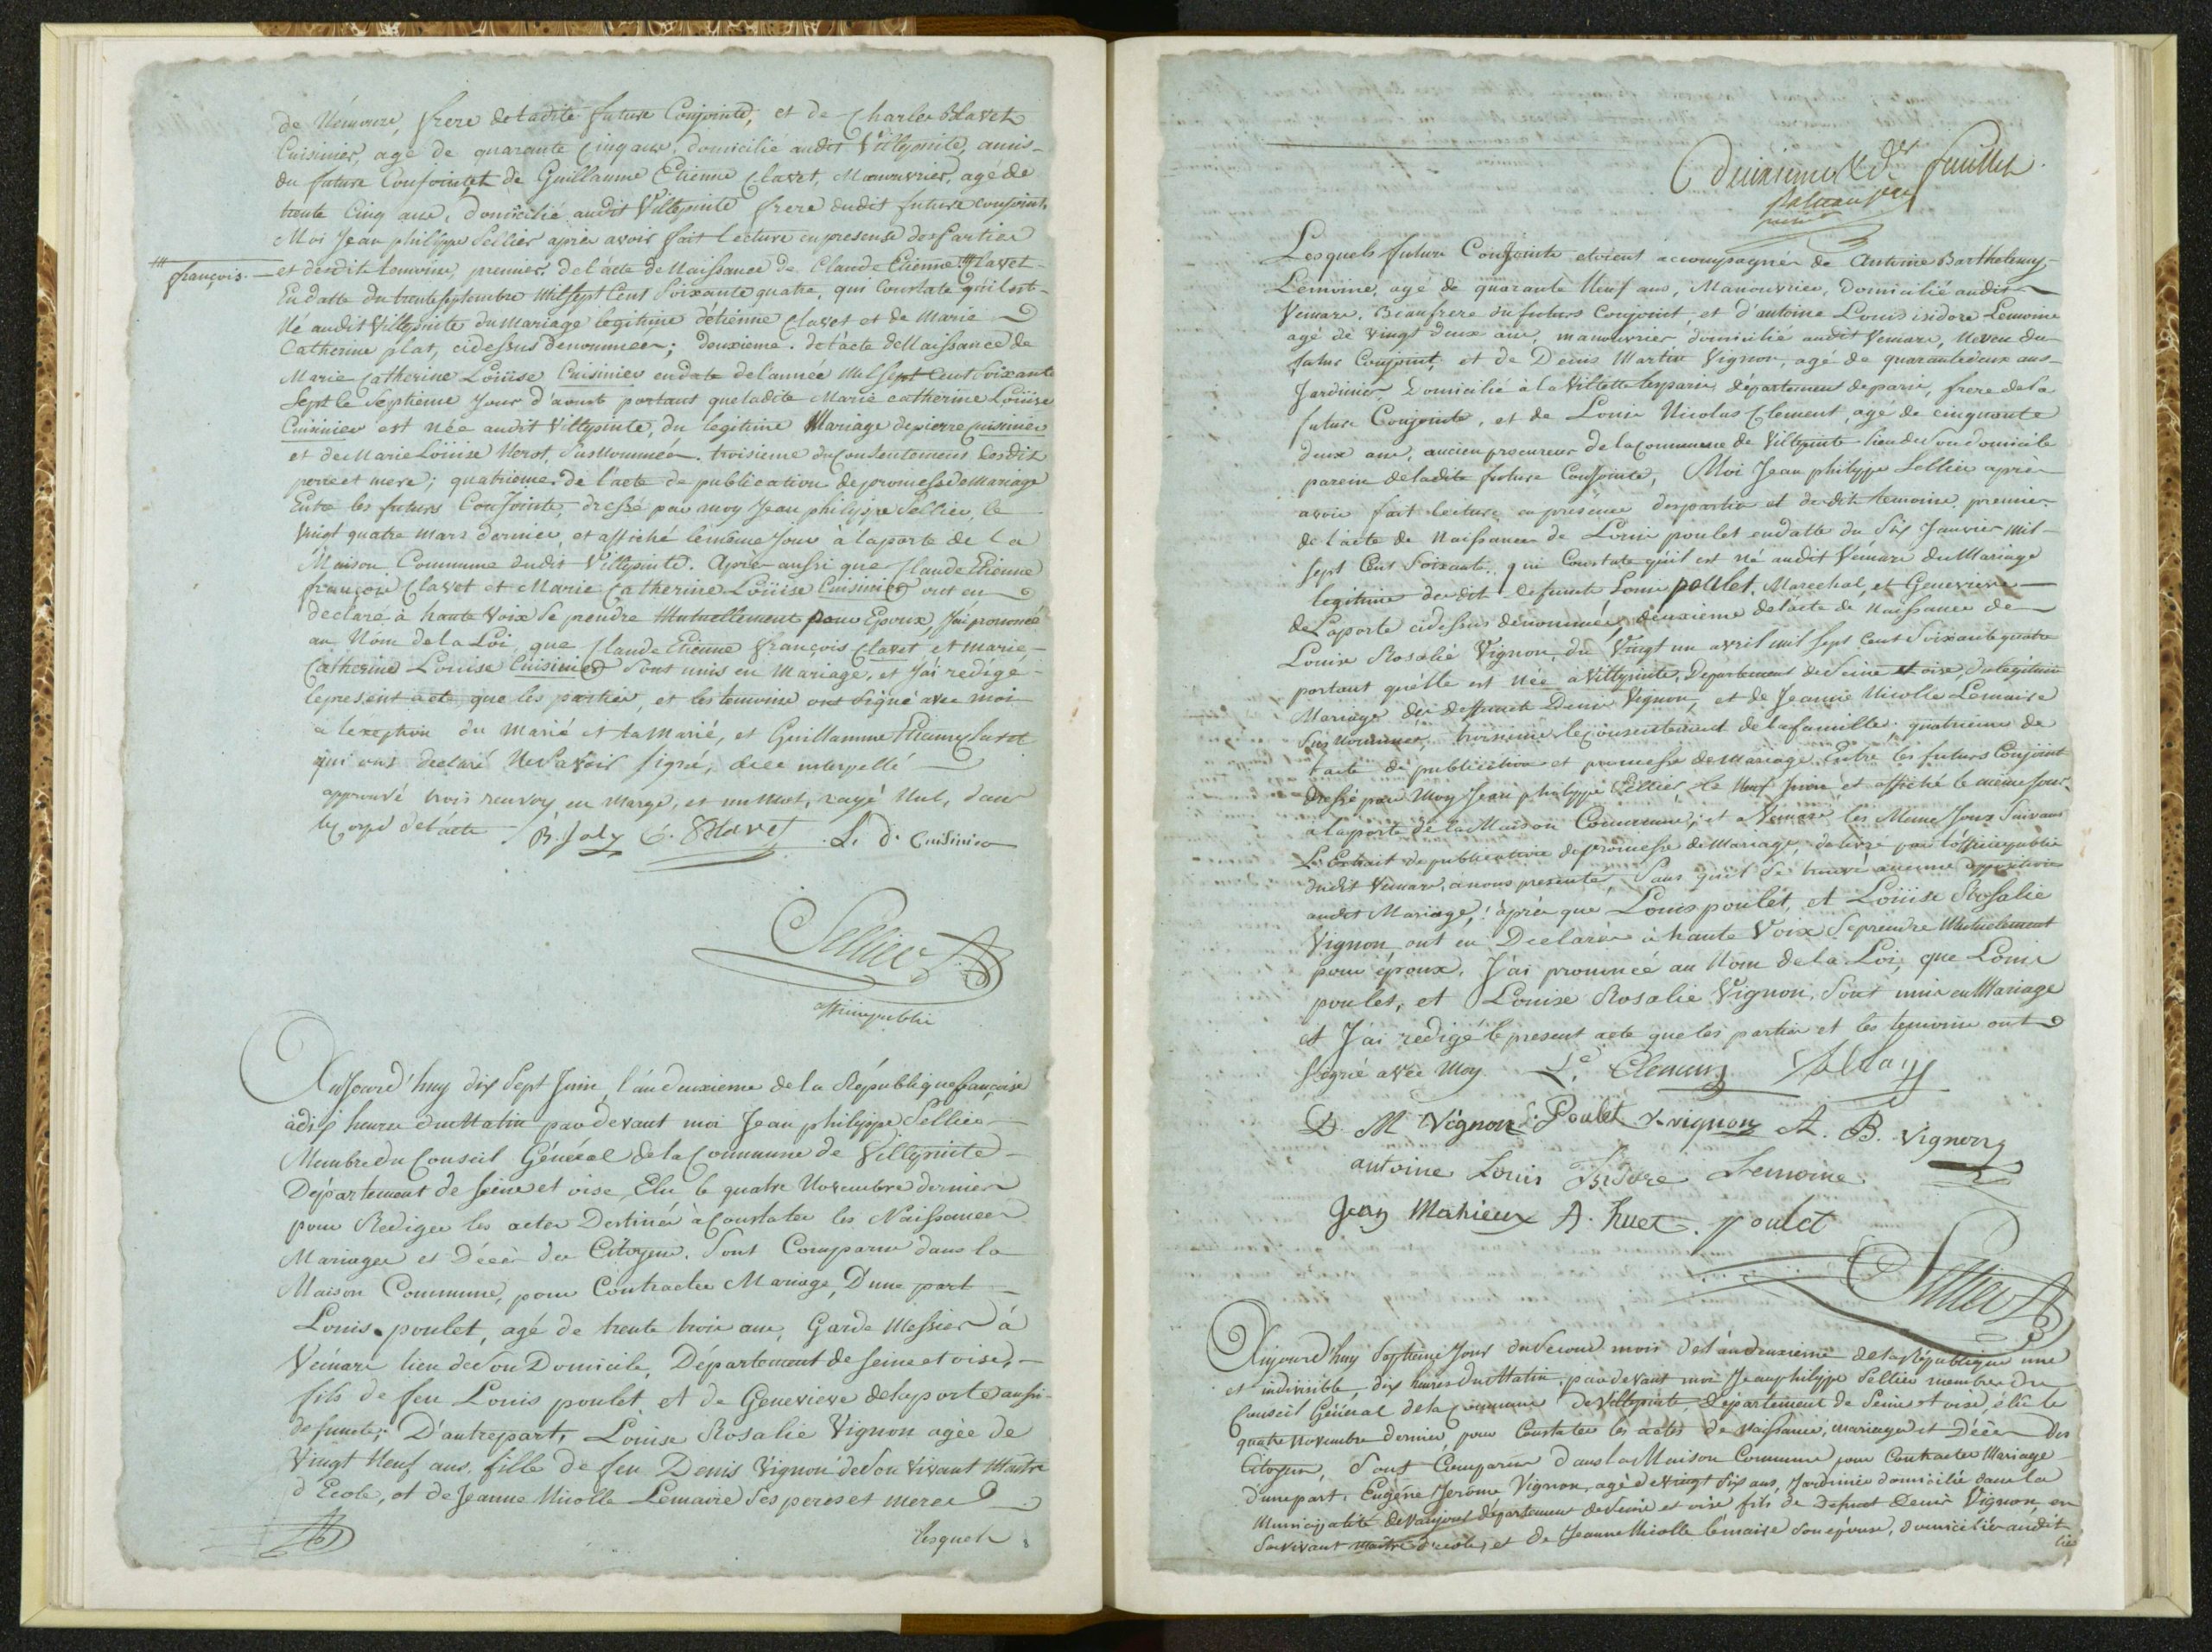 de Némoure, frere de ladite future Conjointe, et de Charles Blavet
Cuisinier, agé de quarante Cinq ans, domicilié audit Villepinte, amis
du future Conjoint, et de Guillaume Etienne Clavet, Manouvrier, agé de
trente Cinq ans, domicilié audit Villepinte frere dudit future conjoint.
Moi Jean philippe Sellier après avoir fait lecture en presense des Parties
et desdits temoins, premier. de l'acte de Naissance de Claude Etienne Clavet
françois.
En datte du trente Septembre Mil Sept Cent Soixante quatre, qui Constate qu'il est
Né audit Villepinte du Mariage legitime d'etienne Clavet et de Marie
Catherine plat, cidessus denommées; deuxieme. de l'acte de Naissance de
Marie Catherine Loüise Cuisinier en date de l'annee Mil Sept Cent Soixante
Sept le Septieme Jour d'aout portant que ladite Marie catherine Loüise
Cuisinier est née audit Villepinte, du legitime Mariage de pierre Cuisinier
et de Marie Loüise Herot, Susnommée. troisieme du Consentement desdits
pere et mere; quatrieme. de l'acte de publication de promesse de Mariage
Entre les futurs Conjoints, dressé par moy Jean philippe Sellier, le
Vingt quatre Mars dernier, et affiché le même Jour à la porte de la
Maison Commune dudit Villepinte. Après aussi que Claude Etienne
françois Clavet et Marie Catherine Loüise Cuisinier ont eu
declaré à haute Voix Se prendre Mutuellement pour Epoux, J'ai prononcé
au Nom de la Loi, que Claude Etienne françois Clavet et Marie
Catherine Louise Cuisinier Sont unis en Mariage, et J'ai redigé
le present acte que les parties, et les temoins ont Signé avec moi
à lexeption du Marié et la Marié, et Guillaume Etienne Clavet
qui ont declaré Ne Savoir Signé, de ce interpellé
approuvé trois renvoy en Marge, et un Mot, rayé Nul, dans
le corps de l'acte B. Joly C. Blavet L. D. Cuisinier
Sellier
officier public
Aujourd'huy dix Sept Juin, l'an deuxieme de la République françoise
à dix heures du Matin par devant moi Jean philippe Sellier
Membre du Conseil Général de la Commune de Villepinte
Département de Seine et oise, Elu le quatre Novembre dernier
pour Rediger les actes Destinés à Constater les Naissances
Mariages et Décès des Citoyens. Sont Comparus dans la
Maison Commune, pour Contracter Mariage, D'une part
Louis poulet, agé de trente trois ans, Garde Messier à
Vémars lieu de Son Domicile, Département de Seine et oise,
fils de feu Louis poulet et de Genevieve delaporte aussi
defunte; D'autrepart, Louise Rosalie Vignon agée de
Vingt Neuf ans, fille de feu Denis Vignon de Son Vivant Maitre
d'Ecole, et de Jeanne Nicolle Lemaire Ses peres et meres
lesquels
Deuxieme & der feuillet
Lesquels futurs Conjoints etoient accompagnés de Antoine Barthelemy
Lemoine, agé de quarante Neuf ans, Manouvrier, Domicilié audit
Vemars, Beaufrere du futurs Conjoint, et d'antoine Louis isidore Lemoine
agé de Vingt deux ans, manouvrier, domicilié audit Vemars, Neveu du
futur Conjoint, et de Denis Martin Vignon, agé de quarante deux ans
Jardinier, Domicilié à la Villette les paris, département de paris, frere de la
future Conjointe, et de Louis Nicolas Clement, agé de cinquante
deux ans, ancien procureur de la Commune de Villepinte lieu de Son domicile
parein de ladite future Conjointe, Moi Jean philippe Sellier après
avoir fait lecture en présence des parties et desdits temoins. premier
de l'acte de Naissance de Louis poulet en datte du Six Janvier mil
Sept Cent Soixante, qui Constate qu'il est Né audit Vémars du Mariage
legitime desdits defunts Louis poulet, Marechal, et Genevieve
de Laporte cidessus denommés, deuxieme de l'acte de Naissance de
Louise Rosalie Vignon, du Vingt un avril mil Sept Cent Soixante quatre
portant qu'elle est née à Villepinte, Département de Seine et oise, du legitime
Mariage de deffunt Denis Vignon, et de Jeanne Nicolle Lemaire
Sus nommés, troisieme le consentement de la famille; quatrieme de
l'acte de publication et promesse de Mariage Entre les futurs Conjoint
dressé par Moy Jean philippe Sellier, le Neuf Juin et affiché le même Jour
à la porte de la Maison Commune, et à Vemars les Meme Jours Suivant
L'Extrait de publication de promesse de Mariage, delivré par l'officier public
dudit Vemars, à nous presenté, Sans qu'il Se trouve aucune opposition
audit Mariage, après que Louis poulet, et Loüise Rosalie
Vignon ont eu Déclarés à haute Voix Se prendre Mutuelement
pour époux. J'ai prononcé au Nom de la Loi, que Louis
poulet, et Louise Rosalie Vignon, Sont unis en Mariage
et J'ai redigé le present acte que les parties et les temoins ont
Signé avec Moy L. Clement
D. M Vignon Poulet vignon A. B. vignon
antoine Louis Isidore Lemoine
Jean Mahieux A. huet poulet
Sellier
Aujourd'huy Septieme Jour du Second mois de l'an deuxieme de la République une
et indivisible, dix heures du Matin, par devant moi Jean philippe Sellier membre du
Conseil Général de la Commune de Villepinte, Département de Seine et oise, élu le
quatre Novembre dernier, pour Constater les actes de Naissance, mariage et Décès des
Citoyens, Sont Comparus dans la Maison Commune pour Contracter Mariage
d'une part, Eugéne Jerome Vignon, agé de vingt Six ans, Jardinier domicilié dans la
Municipalité de Vaujours département de Seine et oise fils de Defunt Denis Vignon, en
Son vivant maitre d'ecole, et de Jeanne Nicolle Lemaire Son épouse, domiciliée audit
lieu